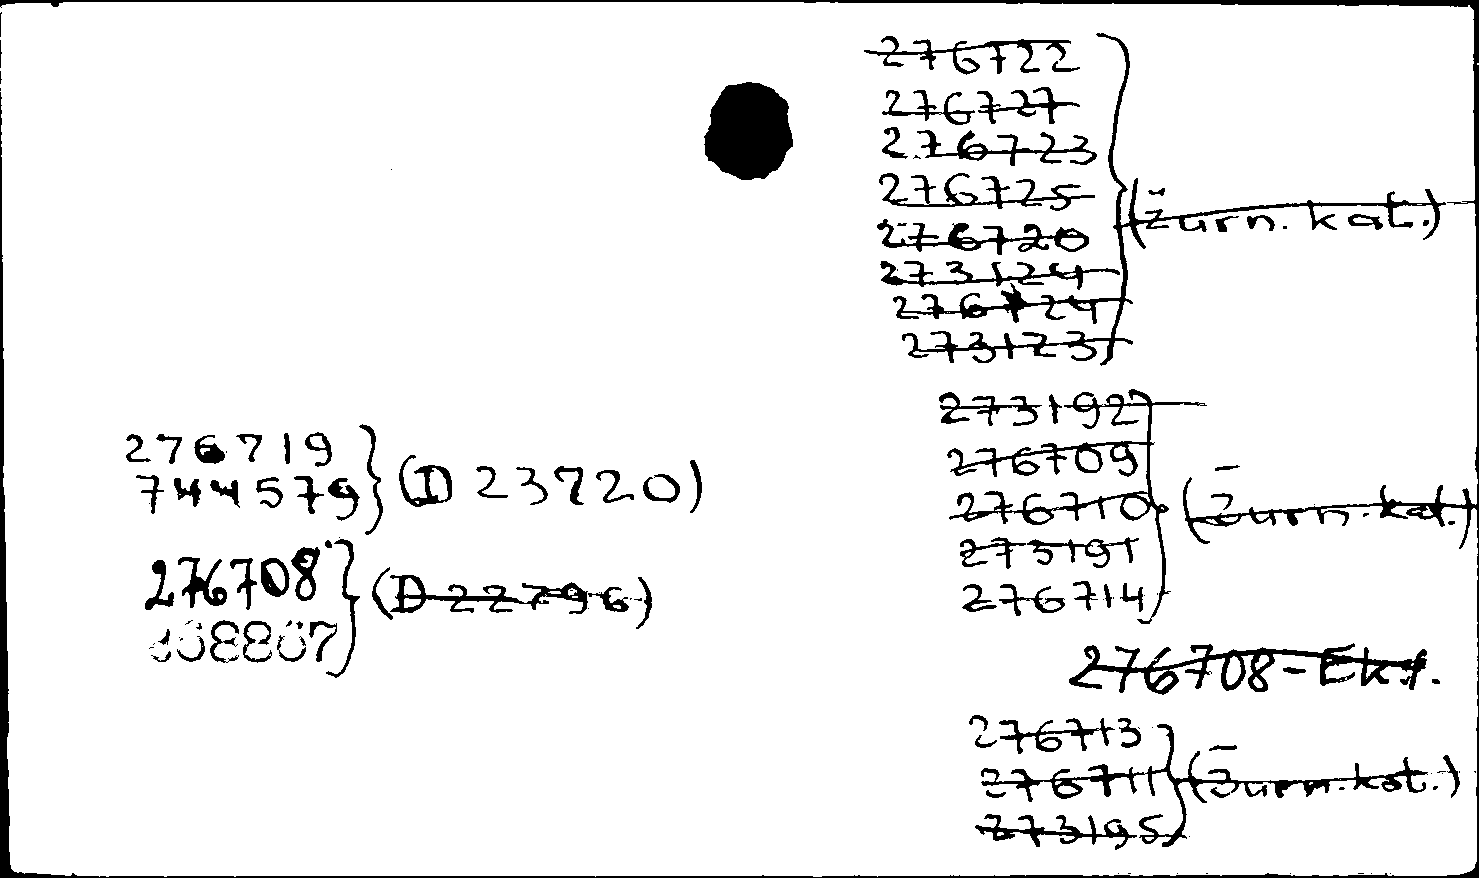 276722
276727
276723
276725
276720
273124
276724
273123
(Žurn. kat.)
273192
276709
276710
273191
276714
(Žurn. kat.)
276708 - Ekf.
276713
276711
273195
(Žurn. kat.)
276719
744579
(D 23720)
276708
(D 22796)